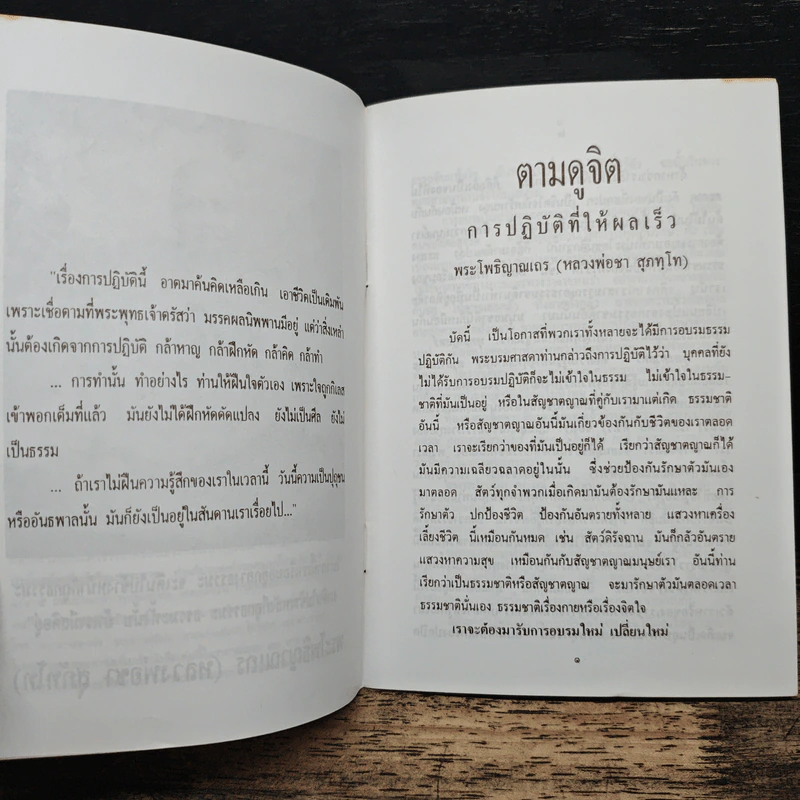 "เรื่องการปฏิบัตินี้ อาตมาค้นคิดเหลือเกิน เอาชีวิตเป็นเดิมพัน
เพราะเชื่อตามที่พระพุทธเจ้าตรัสว่า มรรคผลนิพพานมีอยู่ แต่ว่าสิ่งเหล่า
นั้นต้องเกิดจากการปฏิบัติ กล้าหาญ กล้าฝึกหัด กล้าคิด กล้าทำ
... การทำนั้น ทำอย่างไร ท่านให้ฝืนใจตัวเอง เพราะใจถูกกิเลส
เข้าพอกเต็มที่แล้ว มันยังไม่ได้ฝึกหัดดัดแปลง ยังไม่เป็นศีล ยังไม่
เป็นธรรม
... ถ้าเราไม่ฝืนความรู้สึกของเราในเวลานี้ วันนี้ความเป็นปุถุชน
หรืออันธพาลนั้น มันก็ยังเป็นอยู่ในสันดานเราเรื่อยไป..."
ตามดูจิต
การปฏิบัติที่ให้ผลเร็ว
พระโพธิญาณเถร (หลวงพ่อชา สุภทฺโท)
บัดนี้ เป็นโอกาสที่พวกเราทั้งหลายจะได้มีการอบรมธรรม
ปฏิบัติกัน พระบรมศาสดาท่านกล่าวถึงการปฏิบัติไว้ว่า บุคคลที่ยัง
ไม่ได้รับการอบรมปฏิบัติก็จะไม่เข้าใจในธรรม ไม่เข้าใจในธรรม-
ชาติที่มันเป็นอยู่ หรือในสัญชาตญาณที่คู่กับเรามาแต่เกิด ธรรมชาติ
อันนี้ หรือสัญชาตญาณอันนี้มันเกี่ยวข้องกันกับชีวิตของเราตลอด
เวลา เราจะเรียกว่าของที่มันเป็นอยู่ก็ได้ เรียกว่าสัญชาตญาณก็ได้
มันมีความเฉลียวฉลาดอยู่ในนั้น ซึ่งช่วยป้องกันรักษาตัวมันเอง
มาตลอด สัตว์ทุกจำพวกเมื่อเกิดมามันต้องรักษามันแหละ การ
รักษาตัว ปกป้องชีวิต ป้องกันอันตรายทั้งหลาย แสวงหาเครื่อง
เลี้ยงชีวิต นี้เหมือนกันหมด เช่น สัตว์ดิรัจฉาน มันก็กลัวอันตราย
แสวงหาความสุข เหมือนกันกับสัญชาตญาณมนุษย์เรา อันนี้ท่าน
เรียกว่าเป็นธรรมชาติหรือสัญชาตญาณ จะมารักษาตัวมันตลอดเวลา
ธรรมชาตินั่นเอง ธรรมชาติเรื่องกายหรือเรื่องจิตใจ
เราจะต้องมารับการอบรมใหม่ เปลี่ยนใหม่
๑